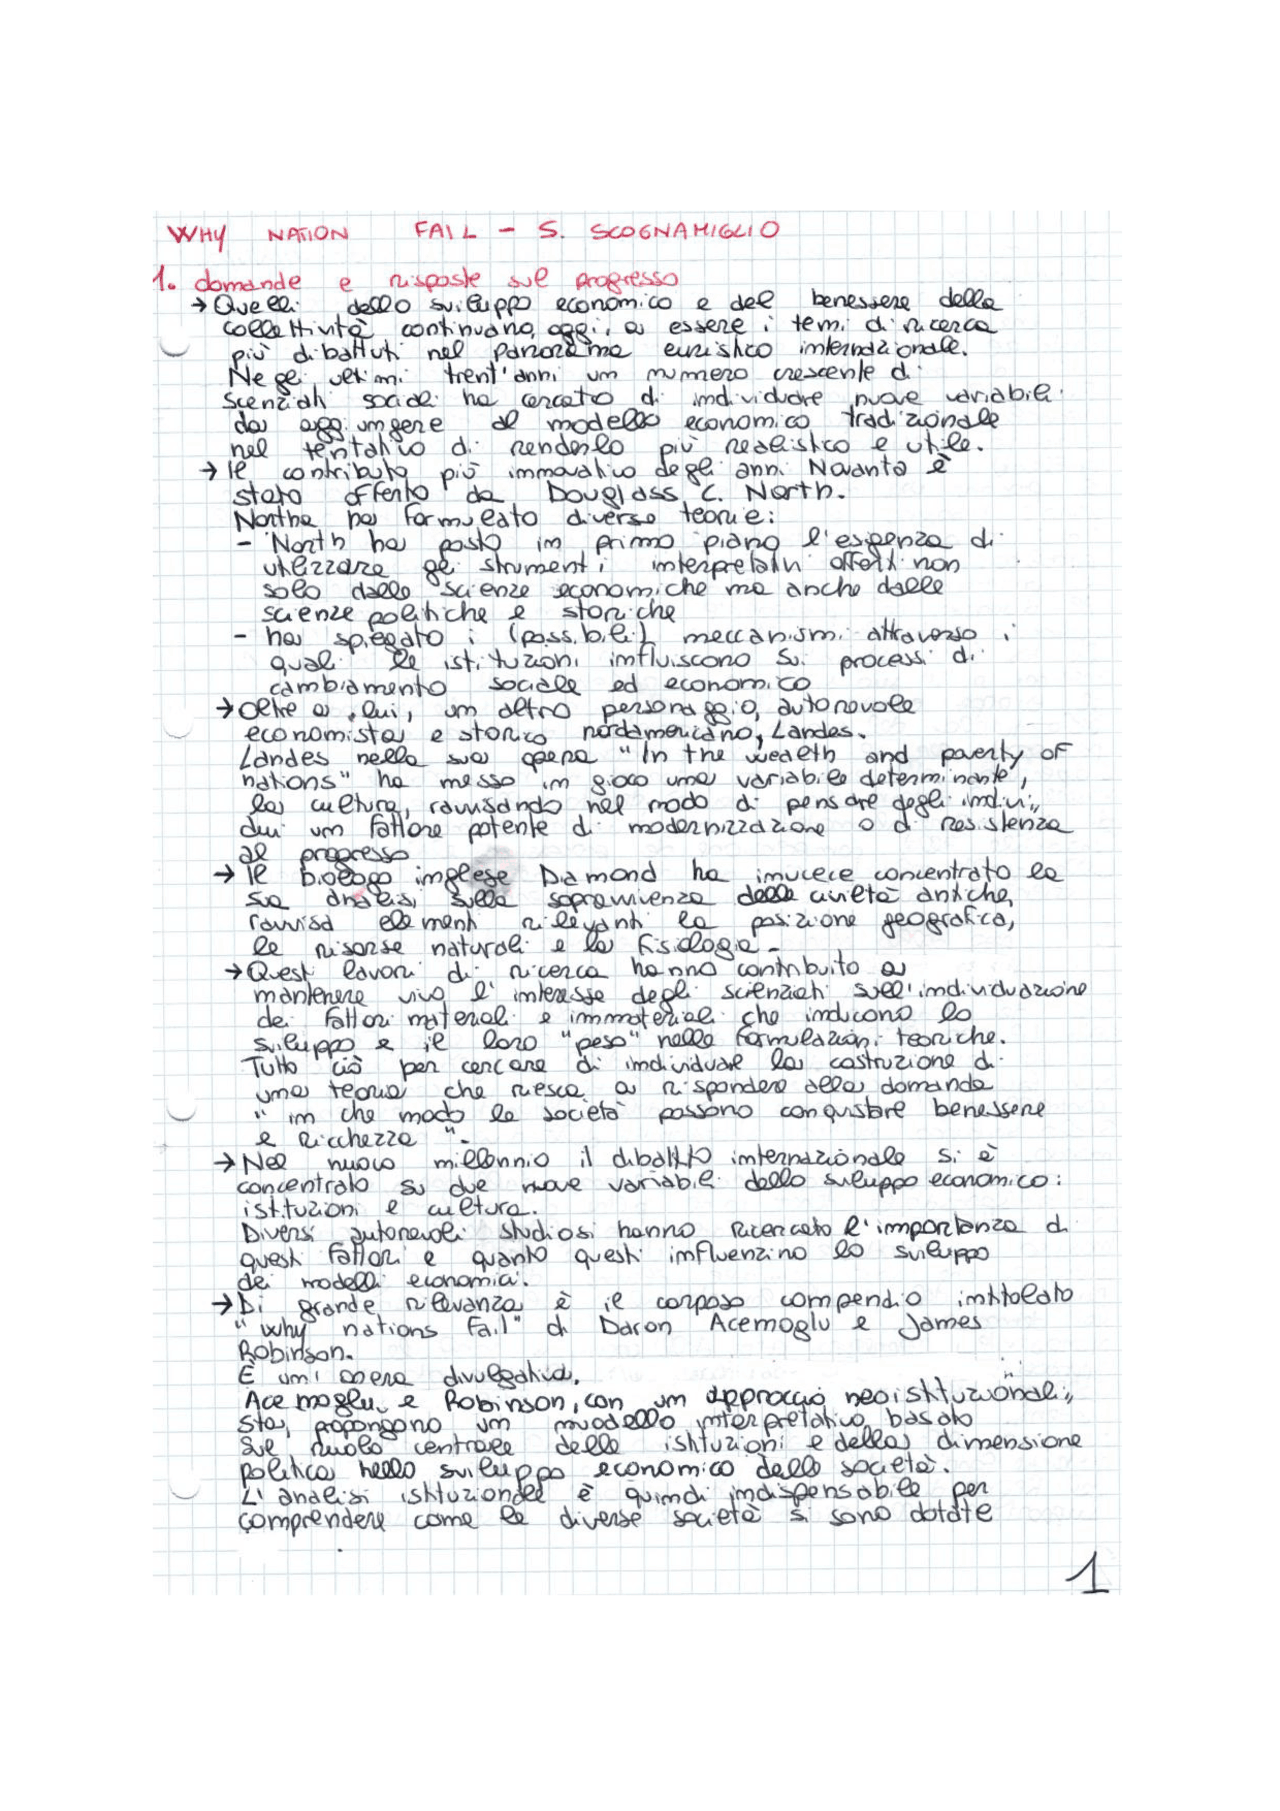 WHY NATION FAIL - S. SCOGNAMIGLIO
1. domande e risposte sul progresso
→ Quelli dello sviluppo economico e del benessere della
collettività continuano, oggi, a essere i temi di ricerca
più dibattuti nel panorama euristico internazionale.
Negli ultimi trent'anni un numero crescente di
scienziati sociali ha cercato di individuare nuove variabili
da aggiungere al modello economico tradizionale
nel tentativo di renderlo più realistico e utile.
→ Il contributo più innovativo degli anni Novanta è
stato offerto da Douglass C. North.
Northa ha formulato diverse teorie:
- North ha posto in primo piano l'esigenza di
utilizzare gli strumenti interpretativi offerti non
solo dalle scienze economiche ma anche dalle
scienze politiche e storiche
- ha spiegato i (possibili) meccanismi attraverso i
quali le istituzioni influiscono sui processi di
cambiamento sociale ed economico
→ Oltre a lui, un altro personaggio, autorevole
economista e storico nordamericano, Landes.
Landes nella sua opera "In the wealth and poverty of
nations" ha messo in gioco una variabile determinante,
la cultura, ravvisando nel modo di pensare degli indivi,,
dui un fattore potente di modernizzazione o di resistenza
al progresso
→ Il biologo inglese Diamond ha invece concentrato la
sua analisi sulla sopravvivenza delle civiltà antiche,
ravvisa elementi rilevanti la posizione geografica,
le risorse naturali e la fisiologia.
→ Questi lavori di ricerca hanno contribuito a
mantenere vivo l'interesse degli scienziati sull'individuazione
dei fattori materiali e immateriali che inducono lo
sviluppo e il loro "peso" nelle formulazioni teoriche.
Tutto ciò per cercare di individuare la costruzione di
una teoria che riesca a rispondere alla domanda
"in che modo le società possono conquistare benessere
e ricchezza".
→ Nel nuovo millennio il dibattito internazionale si è
concentrato su due nuove variabili dello sviluppo economico:
istituzioni e cultura.
Diversi autorevoli studiosi hanno ricercato l'importanza di
questi fattori e quanto questi influenzino lo sviluppo
dei modelli economici.
→ Di grande rilevanza è il corposo compendio intitolato
"Why nations fail" di Daron Acemoglu e James
Robinson.
È un'opera divulgativa.
Acemoglu e Robinson, con un approccio neoistituzionali,,
sta, propongono un modello interpretativo basato
sul ruolo centrale delle istituzioni e della dimensione
politica nello sviluppo economico delle società.
L'analisi istituzionale è quindi indispensabile per
comprendere come le diverse società si sono dotate
1